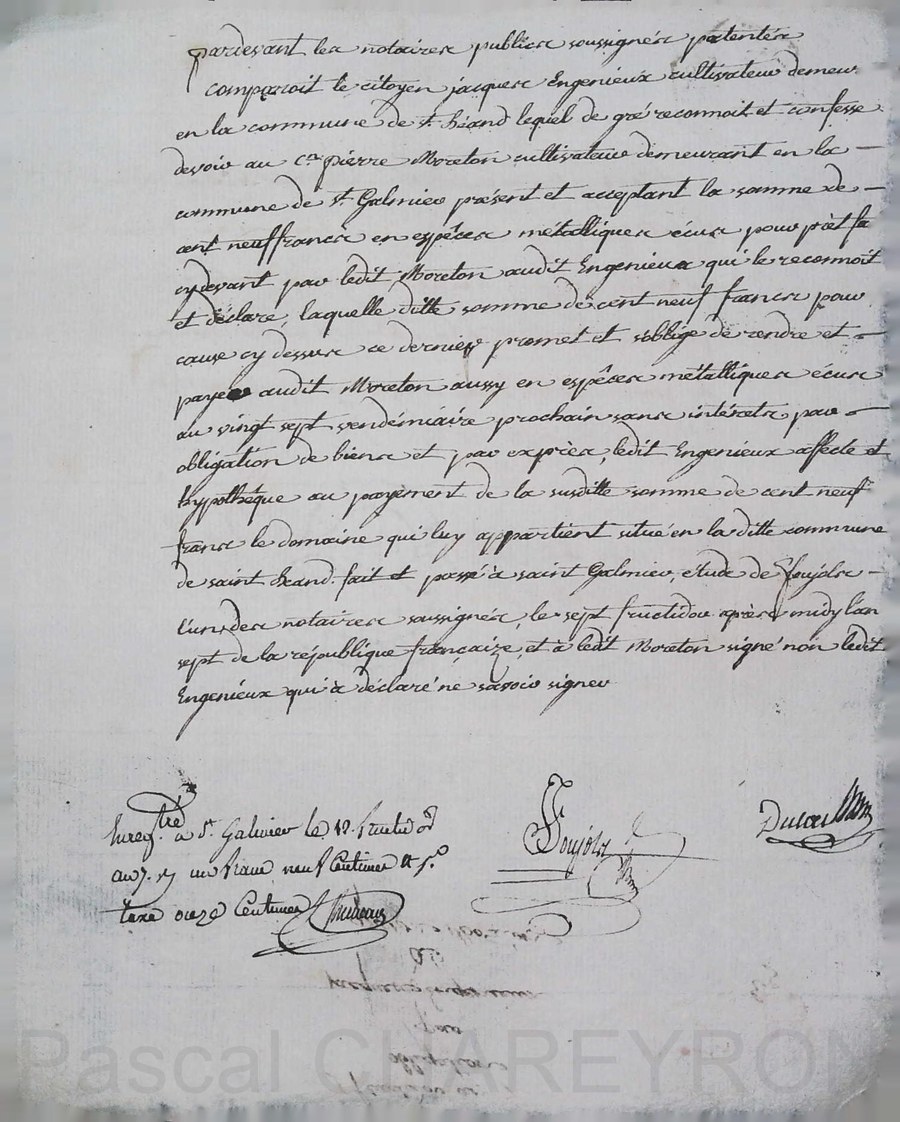 pardevant les notaires publics soussignés patentés
comparoit le citoyen jacques Engenieux cultivateur demeu.
en la commune de st. héand lequel de gré reconnoit et confesse
devoir au cen. pierre Moreton cultivateur demeurant en la —
commune de st. Galmier présent et acceptant la somme de —
cent neuf francs en espéces métalliques écus pour prèt fa
cy devant par ledit Moreton audit Engenieux qui le reconnoit
et déclare, laquelle ditte somme de cent neuf francs pour
cause cy dessus ce dernier promet et s'oblige de rendre et —
payer audit Moreton aussy en espéces métalliques écus
au vingt sept vendémiaire prochain sans intérèts par —
obligation de biens et par exprès, ledit Engenieux affecte et
hypothèque au payement de la susditte somme de cent neuf
francs le domaine qui luy appartient situé en la ditte commune
de saint héand. fait et passé à saint Galmier, etude de Foujols —
l'un des notaires soussignés, le sept fructidor après midy l'an
sept de la république françaize, et à ledit Moreton signé non ledit
Engenieux qui à déclaré ne savoir signer
Enregtré. a St. Galmier le 12. fructidor
an 7. un franc neuf Centimes
taxe onze Centimes
Foujols
Pascal CHAREYRON